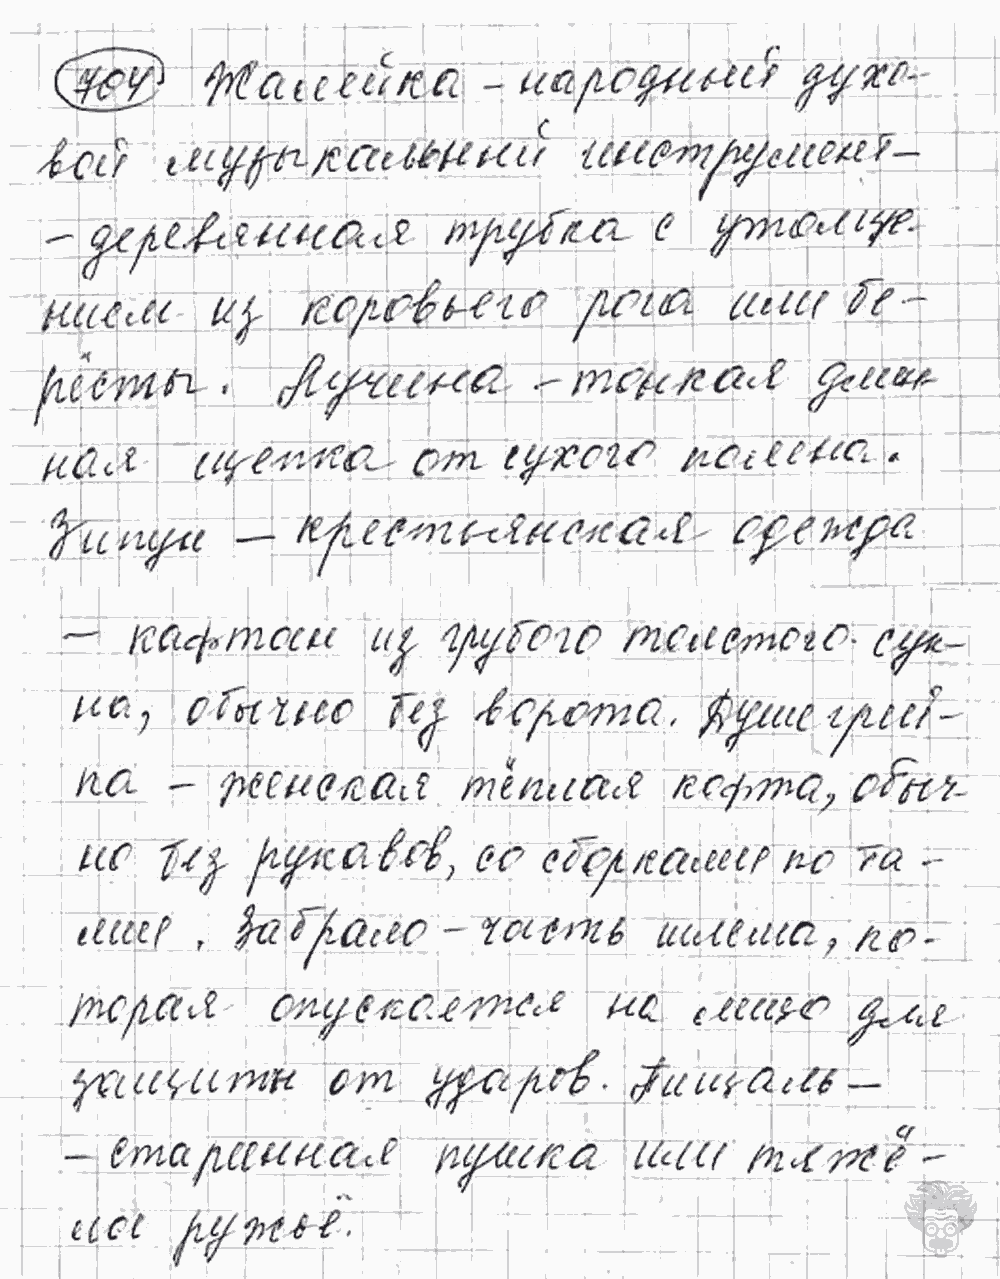 704 Жалейка – народный духо-
вой музыкальный инструмент –
– деревянная трубка с утолще-
нием из коровьего рога или бе-
рёсты. Лучина – тонкая длин-
ная щепка от сухого полена.
Зипун – крестьянская одежда
– кафтан из грубого толстого сук-
на, обычно без ворота. Душегрей-
ка – женская тёплая кофта, обыч-
но без рукавов, со сборками по та-
лии. Забрало – часть шлема, ко-
торая опускается на лицо для
защиты от ударов. Пищаль –
– старинная пушка или тяжё-
лое ружьё.